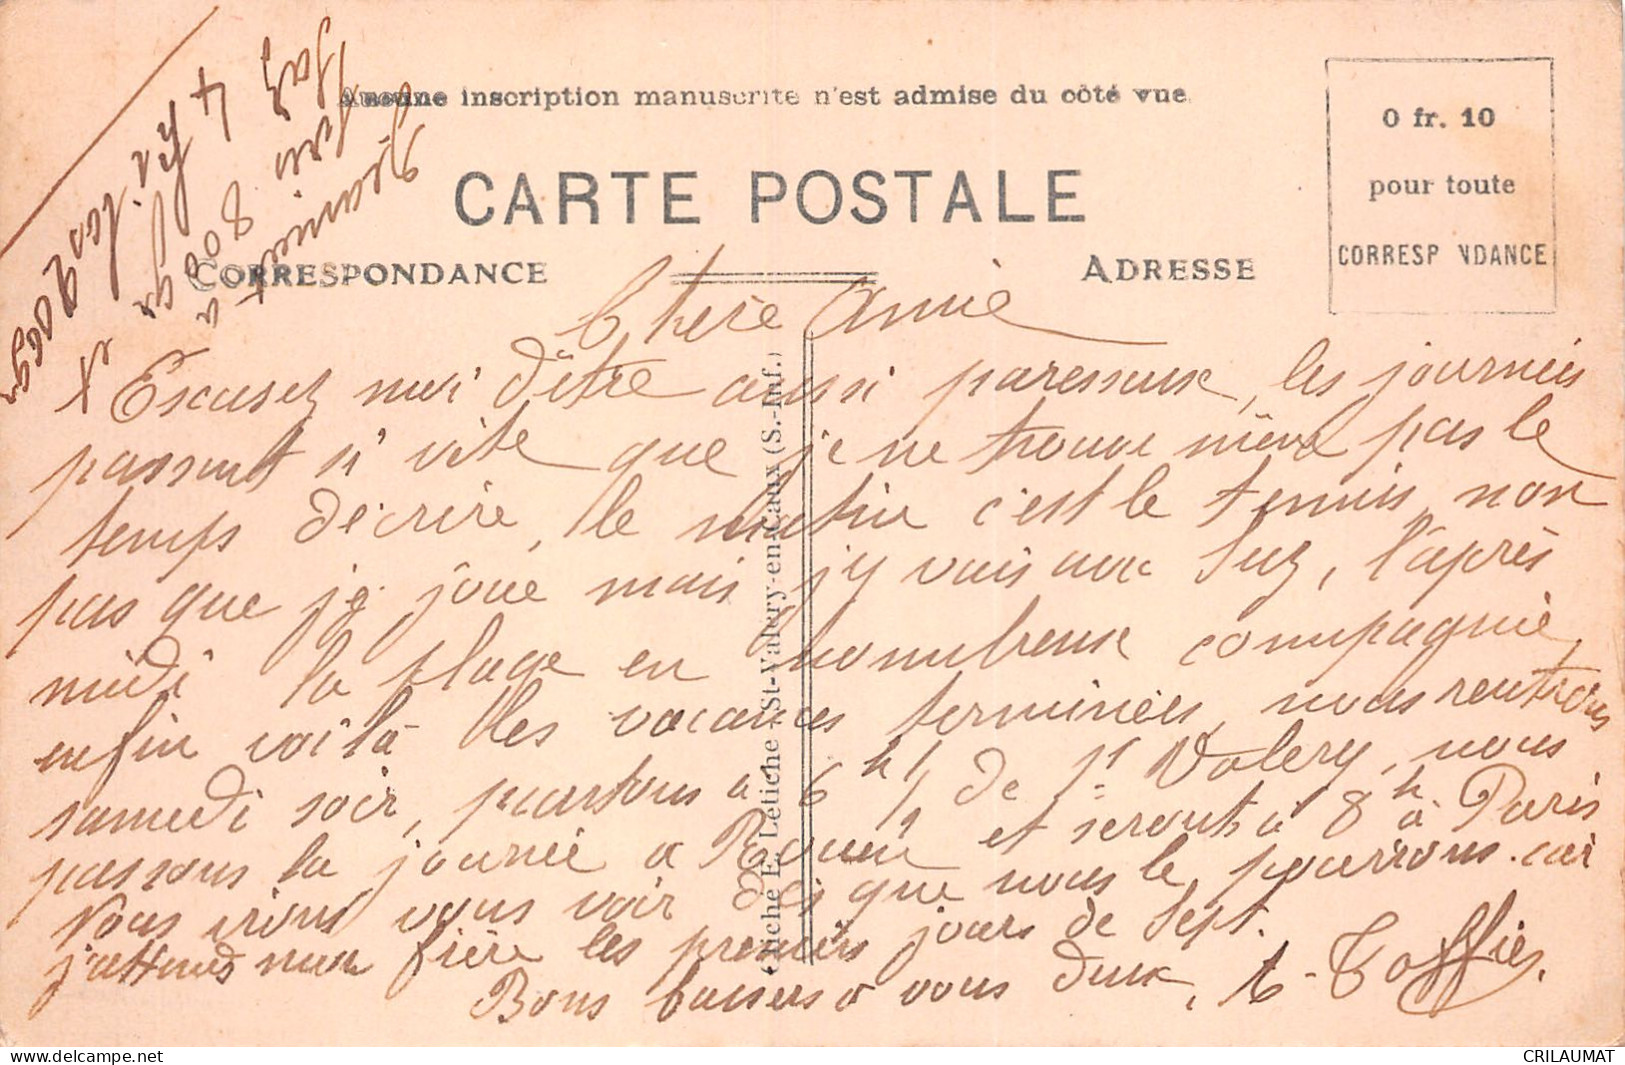 Aucune inscription manuscrite n'est admise du côté vue
CARTE POSTALE
CORRESPONDANCE
ADRESSE
0 fr. 10
pour toute
CORRESP NDANCE
Chère Amie
Excusez moi d'être aussi paresseux, les journées
passent si vite que je ne trouve même pas le
temps d'écrire, le matin c'est le tennis, non
pas que je joue mais j'y vais avec Suz, l'après
midi la plage en nombreuse compagnie,
enfin voilà les vacances terminées, nous rentrons
samedi soir, partons à 6h 1/2 de St Valery, nous
passons la journée à Rouen et seront à 8h à Paris
Nous irons vous voir dès que nous le pourrons. car
j'attends mon frère les premiers jours de Sept.
Bons baisers à vous deux,
Cliché E. Letiche (St-Valery-en-Caux (S.-Inf.)